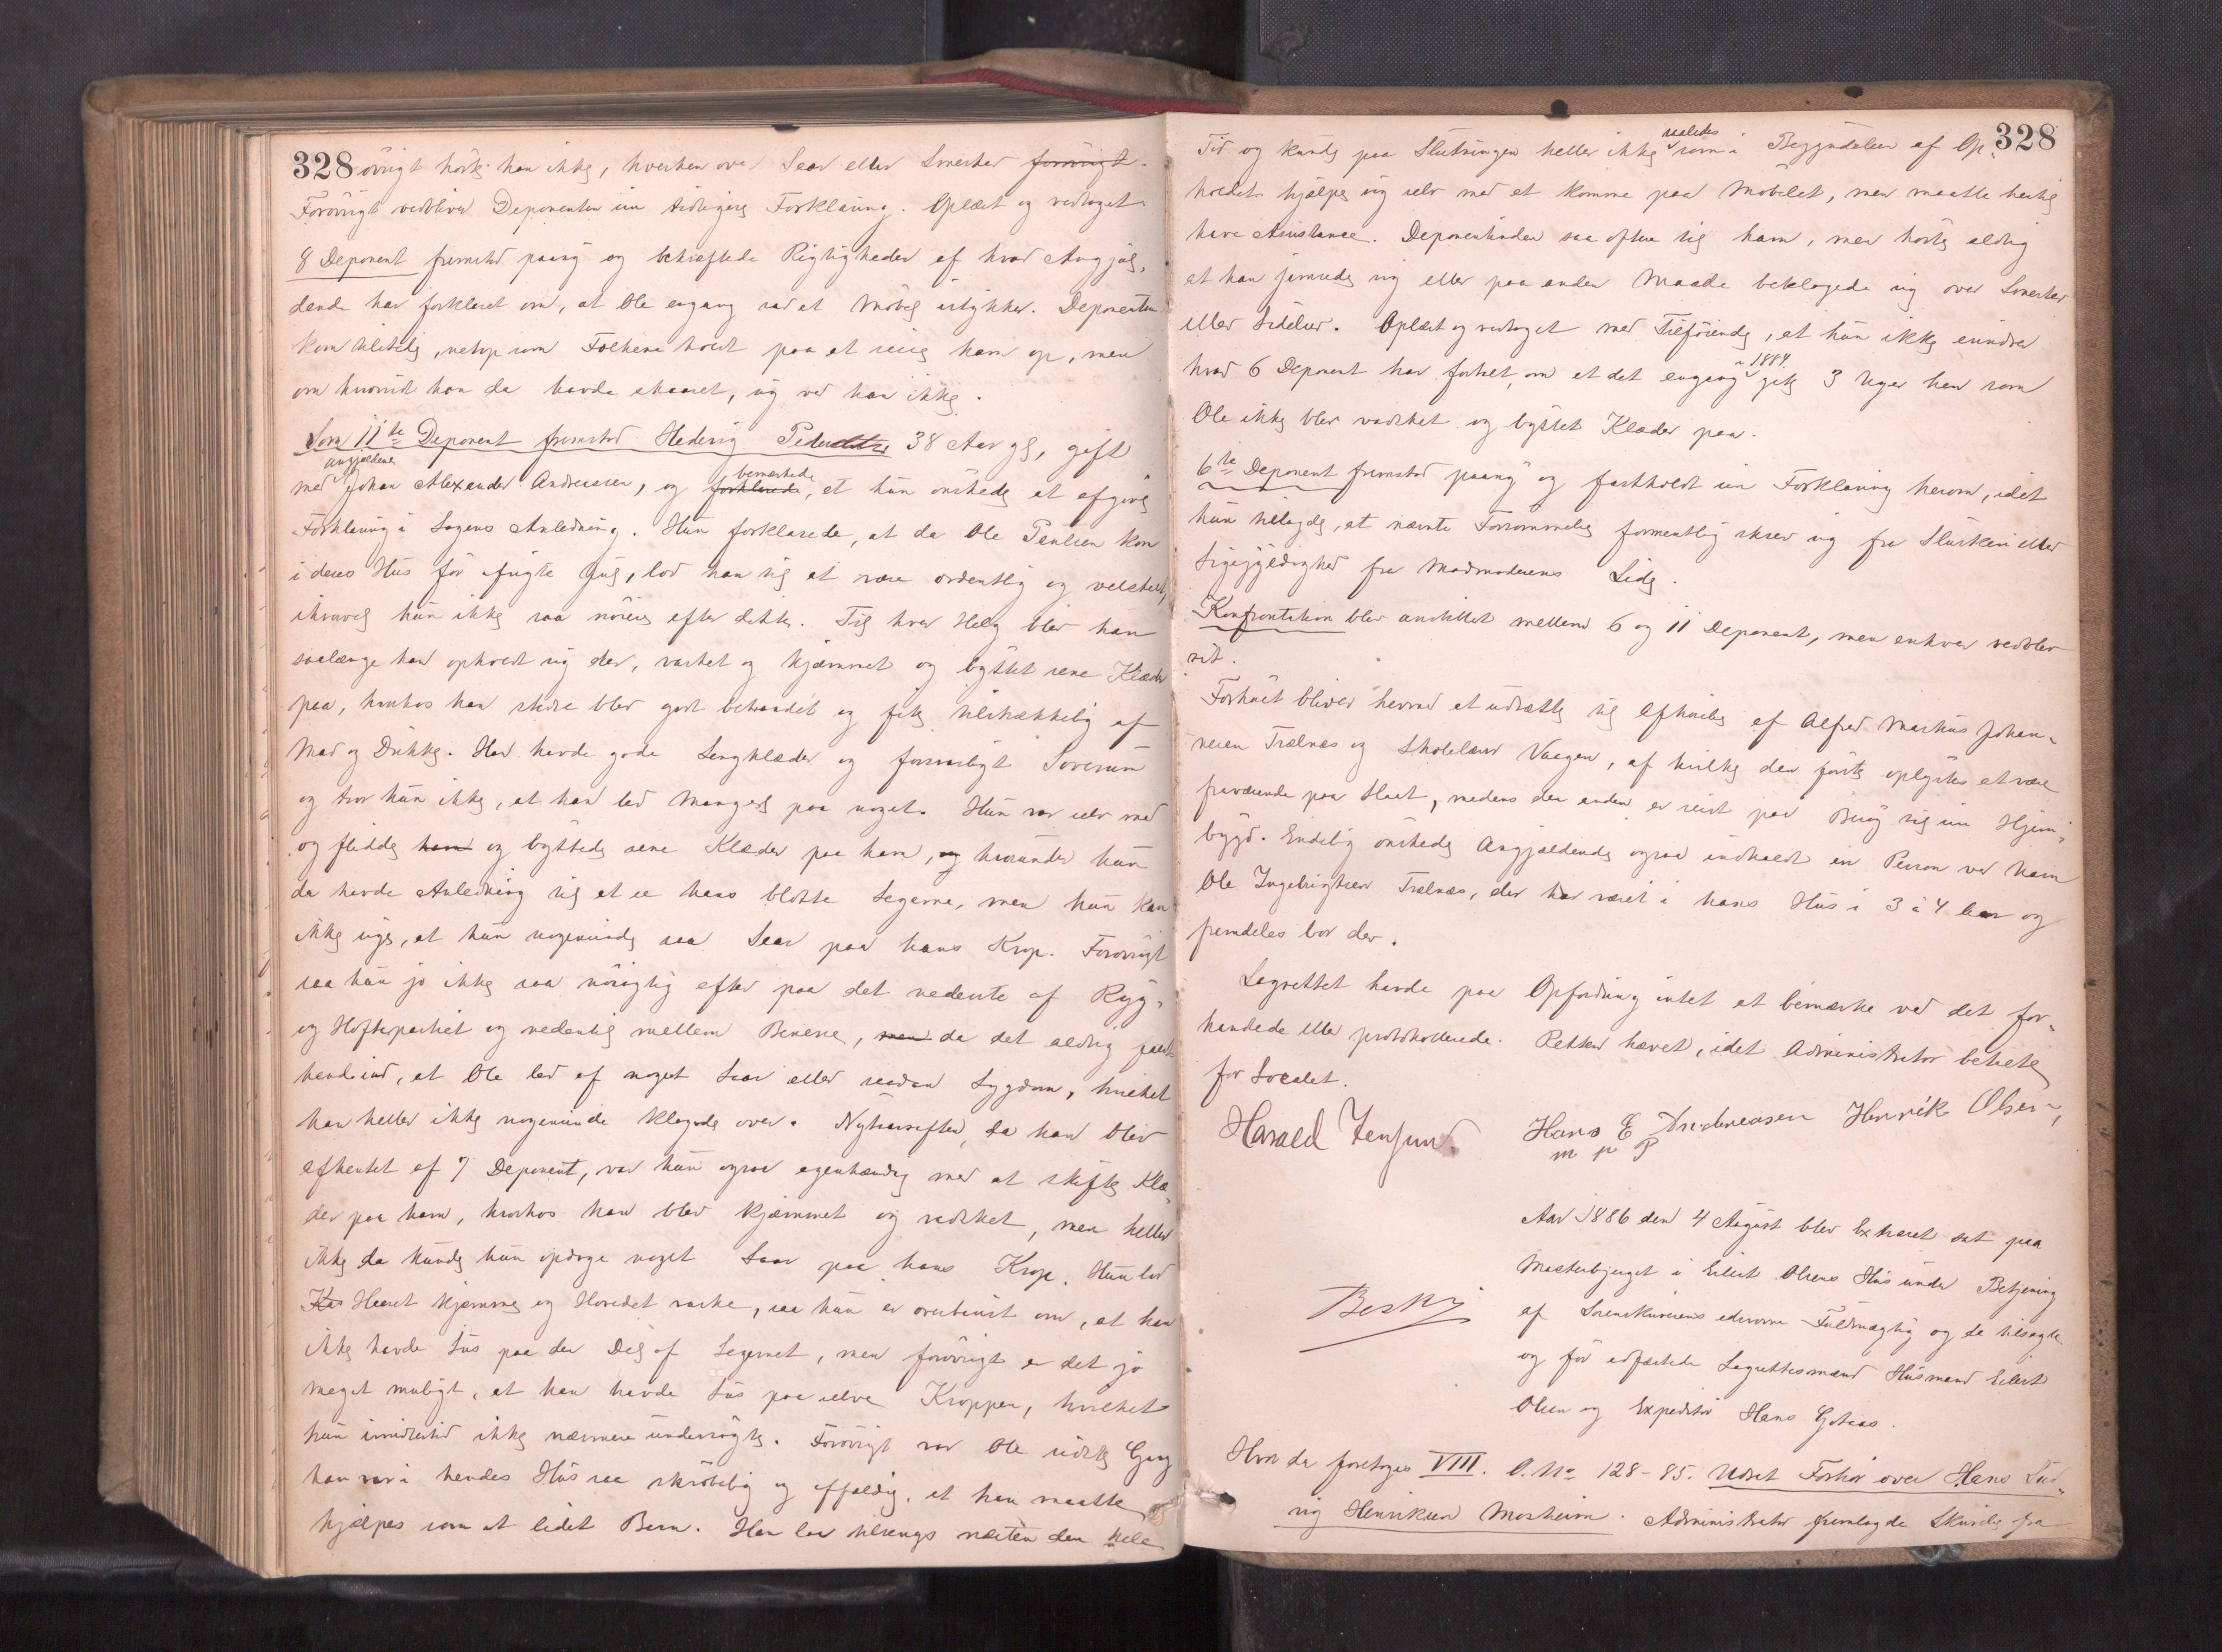 328 øvrigt hørte han ikke, hverken over Saar eller Smerter forøvrigt.
Forøvrigt vedbliver Deponenten sin tidligere Forklaring. Oplæst og vedtaget.
8 Deponent fremstod paany og bekræftede Rigtigheden af hvad Angjæl-
dende har forklaret om, at Ole engang sad et Møbel istykker. Deponenten
kom tilstede, netop som Folkene holdt paa at reise ham op, men
om hvorvidt han da havde skaaret sig ved han ikke.
Som 11te Deponent fremstod Hedevig Pedersdtr 38 Aar gl, gift
med angjældende Johan Alexander Andreassen, og forklarede bemærkede, at hun ønskede at afgive
Forklaring i Sagens Anledning. Hun forklarede, at da Ole Paulsen kom
i deres Hus før afvigte Jul, lod han til at være ordentlig og velstelt,
ihvorvel hun ikke saa nøiere efter dette. Til hver Helg blev han
saalænge han opholdt sig der, vasket og kjæmmet og byttet rene Klæder
paa, hvorhos han stedse blev godt behandlet og fik tilstrækkelig af
Mad og Drikke. Han havde gode Sengklæder og forsvarligt Soverum
og tror hun ikke, at han led Mangel paa noget. Hun var selv med
og fliddede ham og byttede rene Klæder paa ham, og hvorunder hun
da havde Anledning til at se hans blotte Legeme, men hun kan
ikke sige, at hun nogensinde saa Saar paa hans Krop. Forøvrigt
saa hun jo ikke saa nøiagtig efter paa det nederste af Ryg-
og Hoftepartiet og nedentil mellem Benene, men da det aldrig faldt
hende ind, at Ole led af noget Saar eller saadan Sygdom, hvilket
han heller ikke nogensinde klagede over. Nytaarsaften, da han blev
afhentet af 7 Deponent, var hun ogsaa egenhændig med at skifte Klæ-
der paa ham, hvorhos han blev kjæmmet og vadsket, men heller
ikke da kunde hun opdage noget Saar paa hans Krop. Hun lod
Ka Haaret kjæmme og Hovedet vaske, saa hun er overbevist om, at han
ikke havde Lus paa den Del af Legemet, men forøvrigt er det jo
meget muligt, at han havde Lus paa selve Kroppen, hvilket
hun imidlertid ikke nærmere undersøgte. Forøvrigt var Ole sidste Gang
han var i hendes Hus saa skrøbelig og affældig, at han maatte
hjælpes som et lidet Barn. Han laa tilsengs næsten den hele
328
Tid og kunde paa Slutningen heller ikke saaledes som i Begyndelsen af Op-
holdet hjælpe sig selv med at komme paa Møbelet, men maatte hertil
have Assistance. Deponentinden saa oftere til ham, men hørte aldrig
at han jamrede sig eller paa anden Maade beklagede sig over Smerter
eller Lidelser. Oplæst og vedtaget med Tilføiende, at hun ikke erindrer
hvad 6 Deponent har fortalt, om at det engang i 1884 gik 3 Uger hen som
Ole ikke blev vadsket og byttet Klæder paa.
6te Deponent fremstod paany og fastholdt sin Forklaring herom, idet
hun tilføyde, at nævnte Forsømmelse formentlig skrev sig fra Slurkeri eller
Ligegyldighed fra Madmoderens Side.
Konfrontation blev anstillet mellem 6 og 11 Deponent, men enhver vedblev
sit.
Forhøret bliver herved at udsætte til Afhørelse af Alfred Markus Johan-
nesen Trælnes og Skolelærer Vaagen, af hvilke den første oplystes at være
fraværende paa Slaat, medens den anden er reist paa Besøg til sin Hjem-
bygd. Endelig ønskede Angjældende ogsaa indkaldt en Person ved Navn
Ole Ingebrigtsen Trælnes, der har været i hans Hus i 3 à 4 Aar og
fremdeles bor der.
Lagrettet havde paa Opfordring intet at bemærke ved det for-
handlede eller protokollerede. Retten hævet, idet Administrator betalte
for Localet.
Harald Jensund. Hans E Andreasen Henrik Olsen,
m p P
Aar 1886 den 4 August blev Extraret sat paa
Mosterbjerget i Eilert Olsens Hus under Betjening
af Sorenskriverens edsvorne Fuldmægtig og de tilsagte
og før edfæstede Lagrettesmænd Husmand Eilert
Olsen og Expeditør Hans Gotaas.
Besk
Hvor da foretoges VIII. O. No 128-85. Udsat Forhør over Hans Lud-
vig Henriksen Mosheim. Administrator fremlagde Skrivelse fra